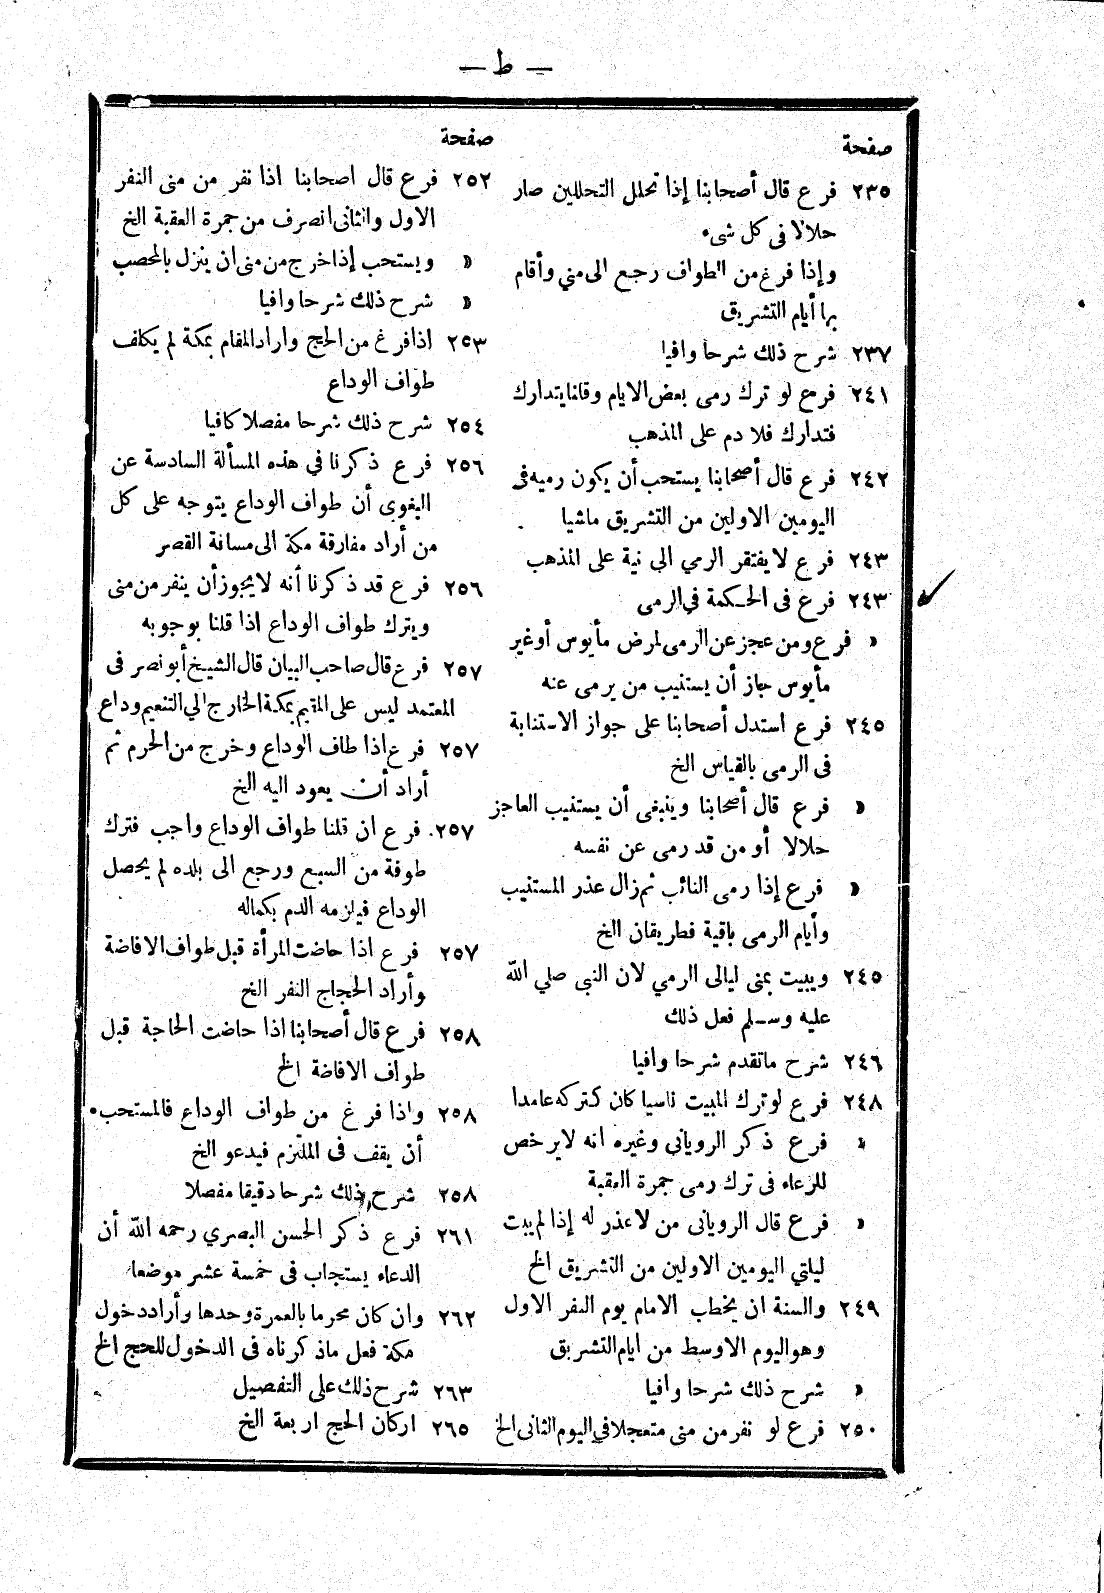 — ط —
صفحة
٢٣٥ فرع قال أصحابنا إذا تحلل التحللين صار
حلالا فى كل شىء
وإذا فرغ من الطواف رجع الى منى وأقام
بها أيام التشريق
٢٣٧ شرح ذلك شرحا وافيا
٢٤١ فرع لو ترك رمى بعض الايام وقلنا يتدارك
فتدارك فلا دم على المذهب
٢٤٢ فرع قال أصحابنا يستحب أن يكون رميه فى
اليومين الاولين من التشريق ماشيا
٢٤٣ فرع لا يفتقر الرمي الى نية على المذهب
٢٤٣ فرع فى الحكمة في الرمى
« فرع ومن عجز عن الرمى لمرض مأيوس أو غير
مأيوس جاز أن يستنيب من يرمى عنه
٢٤٥ فرع استدل أصحابنا على جواز الاستنابة
فى الرمى بالقياس الخ
« فرع قال أصحابنا وينبغى أن يستنيب العاجز
حلالا أو من قد رمى عن نفسه
« فرع إذا رمى النائب ثم زال عذر المستنيب
وأيام الرمى باقية فطريقان الخ
٢٤٥ ويبيت بمنى ليالى الرمي لان النبى صلي الله
عليه وسلم فعل ذلك
٢٤٦ شرح ماتقدم شرحا وافيا
٢٤٨ فرع لو ترك المبيت ناسيا كان كتركه عامدا
« فرع ذكر الرويانى وغيره انه لايرخص
للرعاء فى ترك رمى جمرة العقبة
« فرع قال الرويانى من لا عذر له إذا لم يبت
ليلتي اليومين الاولين من التشريق الخ
٢٤٩ والسنة ان يخطب الامام يوم النفر الاول
وهو اليوم الاوسط من أيام التشريق
« شرح ذلك شرحا وافيا
٢٥٠ فرع لو نفر من منى متعجلا في اليوم الثانى الخ
صفحة
٢٥٢ فرع قال اصحابنا اذا نفر من منى النفر
الاول والثانى انصرف من جمرة العقبة الخ
« ويستحب إذا خرج من منى ان ينزل بالمحصب
« شرح ذلك شرحا وافيا
٢٥٣ اذا فرغ من الحج واراد المقام بمكة لم يكلف
طواف الوداع
٢٥٤ شرح ذلك شرحا مفصلا كافيا
٢٥٦ فرع ذكرنا في هذه المسألة السادسة عن
البغوى أن طواف الوداع يتوجه على كل
من أراد مفارقة مكة الى مسافة القصر
٢٥٦ فرع قد ذكرنا أنه لا يجوز أن ينفر من منى
ويترك طواف الوداع اذا قلنا بوجوبه
٢٥٧ فرع قال صاحب البيان قال الشيخ أبو نصر فى
المعتمد ليس على المقيم بمكة الخارج الي التنعيم وداع
٢٥٧ فرع اذا طاف الوداع وخرج من الحرم ثم
أراد أن يعود اليه الخ
٢٥٧ فرع ان قلنا طواف الوداع واجب فترك
طوفة من السبع ورجع الى بلده لم يحصل
الوداع فيلزمه الدم بكماله
٢٥٧ فرع اذا حاضت المرأة قبل طواف الافاضة
وأراد الحجاج النفر الخ
٢٥٨ فرع قال أصحابنا اذا حاضت الحاجة قبل
طواف الافاضة الخ
٢٥٨ واذا فرغ من طواف الوداع فالمستحب
أن يقف فى الملتزم فيدعو الخ
٢٥٨ شرح ذلك شرحا دقيقا مفصلا
٢٦١ فرع ذكر الحسن البصري رحمه الله أن
الدعاء يستجاب فى خمسة عشر موضعا
٢٦٢ وان كان محرما بالعمرة وحدها وأراد دخول
مكة فعل ماذكرناه فى الدخول للحج الخ
٢٦٣ شرح ذلك على التفصيل
٢٦٥ اركان الحج اربعة الخ